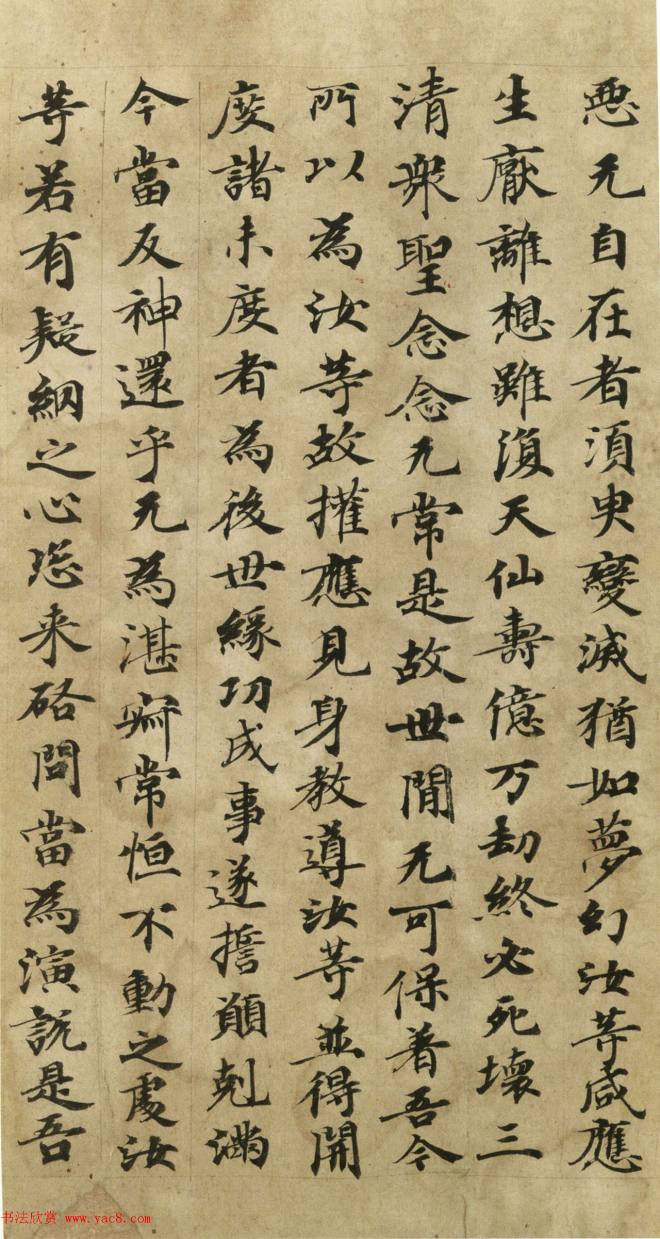 惡无自在者湏臾變滅猶如夢幻汝等咸應
生猒離想雖湏天仙壽億万劫終必死壞三
清衆聖念念无常是故世間无可保著吾今
所以為汝等故權應見身教導汝等並得開
度諸未度者為後世緣功成事遂誓願剋滿
今當反神還乎无為湛寂常恒不動之處汝
等若有疑網之心恣来啓問當為演說是吾
书法欣赏 www.yac8.com